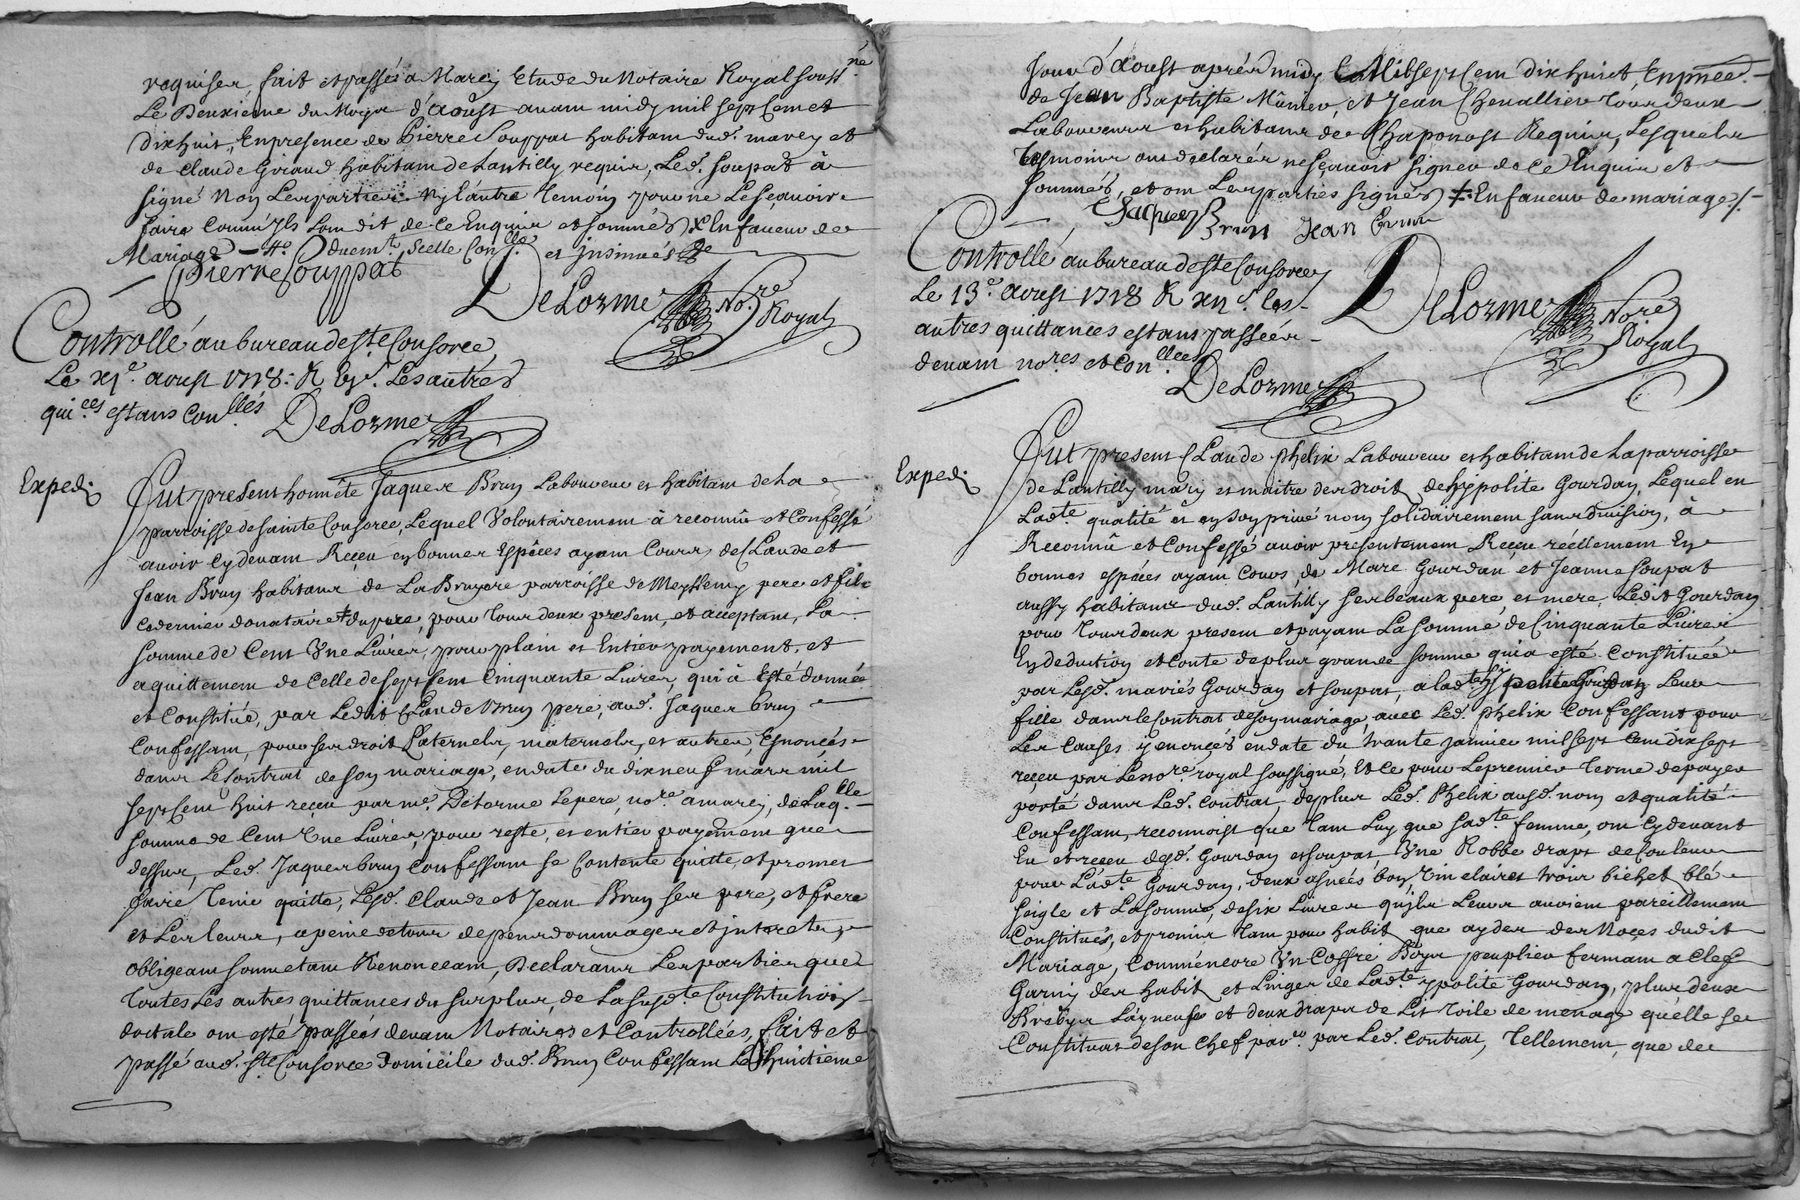 requiser, fait et passé a Marcy Etude du Notaire Royal souss.né
Le Deuxieme du Moys d'aoust avam midy mil sept cem et
dix huit, En presence de Pierre Souppat habitam dud. marcy et
de Claude Giraud habitam de Lantilly requis, Led. soupat à
signé Non Les parties Ny l'autre temoin pour ne Le sçavoir
faire comm'jls l'om dit de ce Enquis et sommés x Enfaueur de
Mariage duemt. scelle Con.llé et jnsinués
Pierre Souppat
DeLorme No.re Royal
Controllé au bureau de ste. Consorce,
Le xj.e aoust 1718: R Les autres
qui.ces estans con.llés DeLorme
Exped.
Fut present honnéte Jaques Brun Laboureur et habitam de la
parroisse de sainte Consorce, Lequel Volontairement à reconnû et Confessé
auoir Cy devam Reçeu en bonnes Espêces ayam Cours, de Claude et
Jean Brun habitans de La Bruyere parroisse de pere et fils
ce dernier donataire du pere, pour tous deux presens, et acceptam, La
somme de Cent Une Livres, pour plain et Entier payement, et
aquittement de Celle de sept Cem Cinquante Livres, qui à Esté donnée
et Constitué, par Ledit Claude Brun pere, aud. Jaques brun
Confessam, pour ses droit Paternels, maternels, et autres, Enoncés
dans Le Contrat de son mariage, en date du dix neuf mars mil
sept Cem huit reçeu par me. Delorme Le pere, no.re a marcy, de Laq.lle
somme de Cent Une Livres, pour reste, et entier payement que
dessus, Led. Jaques brun Confessam se Contente quitte, et promet
faire Tenir quitte, Lesd. Claude et Jean Brun ses pere, et frere
et Les Leurs, a peine de tous depens dommages et jnterets,
obligeam soumetam Renonceam, Declarans Les parties que
Toutes Les autres quittances du surplus, de La susd.te Constitution
doctale om esté passées devam Notaires et Controllées, fait et
passé aud. ste. Consorce Domicile dud. Brun Confessam Le huitieme
Jour d'aoust aprés midy Mil sept Cem dix huict En pnce.
de Jean Baptiste et Jean Chevallier tous deux
Laboureurs et habitans de Chaponost Requis, Lesquels
temoins ons declarés ne sçauoir signer de Ce Enquis et
sommés, et om Les parties signés Enfaueur de mariage
Jaques Brun Jean brun
Controllé au bureau de ste. Consorce
Le 13.e Aoust 1718 R xij s. Les
autres quittances estans passées
devam no.res et con.llees
DeLorme No.re Royal
DeLorme
Exped.
Fut present Claude Phelix Laboureur et habitam de La parroisse
de Lantilly mary et maitre des droit de hypolite Gourdan, Lequel en
Lad.te qualité et en son privé nom solidairement sans division, à
Reconnû et Confessé avoir presentemen Reçeu réellement En
bonnes espéces ayam Cours, de Marc Gourdan et Jeanne Soupat
aussy habitans dud. Lantilly ses beaux pere, et mere, Ledit Gourdan
pour tous deux present et payam La somme de Cinquante Livres
En deduction et Conte de plus grande somme qui a esté Constituée
par Lesd. mariés Gourdan et Soupat, a lad.te Leur
fille dans le Contrat de son mariage, avec Led. Phelix Confessant pour
Les Causes y enoncés en date du trante janvier mil sept Cem dix sept
reçeu par Le no.re royal soussigné, Et ce pour Le premier terme de payer
porté dans Led. Contrat, de plus Led. Phelix ausd. nom et qualité
Confessam, reconnoist que tam Luy que sad.te femme, om Cy devant
Eu et reçeu desd. Gourdan et Soupat, Une Robbe drapt de Couleur
pour Lad.te Gourdan, deux asnées bon vin clairet trois bichet blé
seigle et La somme, de six Livres qu'jls Leurs avoiem pareillement
Constitués, et promis tam pour habit que ayder des Noçes dudit
Mariage, Comme encore Un Coffre Boys peuplier fermam a Clef
Garny des habit et Linges de Lad.te ypolite Gourdan, plus deux
Brebys Layneuses et deux draps de Lit toile de menage quélle se
Constituat de son Chef par Led. Contrat, Tellement, que de